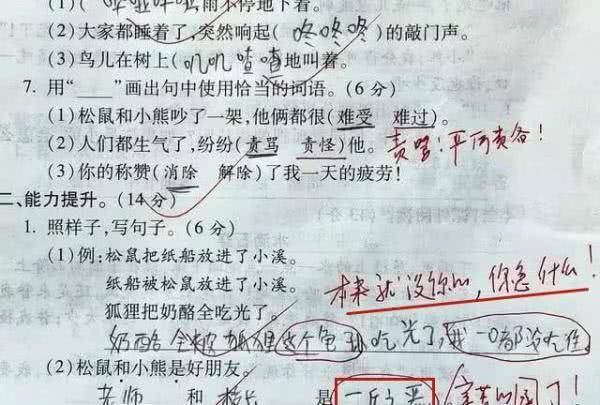 雨不停地下着。
(2)大家都睡着了,突然响起(咚咚咚)的敲门声。
(3)鸟儿在树上(叽叽喳喳)地叫着。
7. 用“____”画出句中使用恰当的词语。(6分)
(1)松鼠和小熊吵了一架,他俩都很(难受 难过)。
(2)人们都生气了,纷纷(责骂 责怪)他。
(3)你的称赞(消除 解除)了我一天的疲劳!
二、能力提升。(14分)
1. 照样子,写句子。(6分)
(1)例:松鼠把纸船放进了小溪。
纸船被松鼠放进了小溪。
本来就没你的,你急什么!
狐狸把奶酪全吃光了。
奶酪全被狐狸这个 吃光了,我一口都没吃
(2)松鼠和小熊是好朋友。
老师 和 校长 是